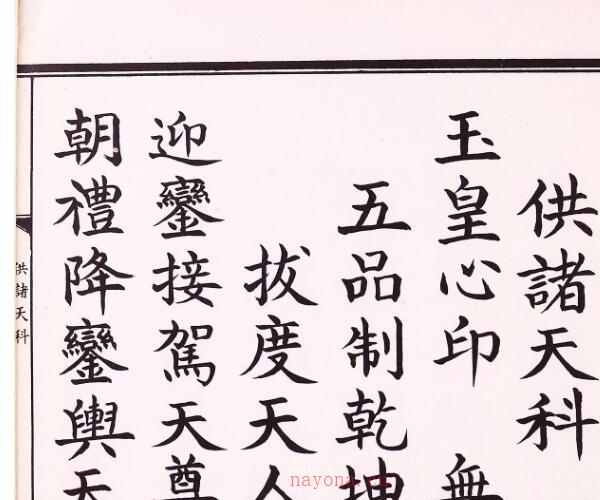 供諸天科
玉皇心印 無
五品制乾坤
拔度天人
迎鑾接駕天尊
朝禮降鑾輿天
供諸天科
nayona.cn